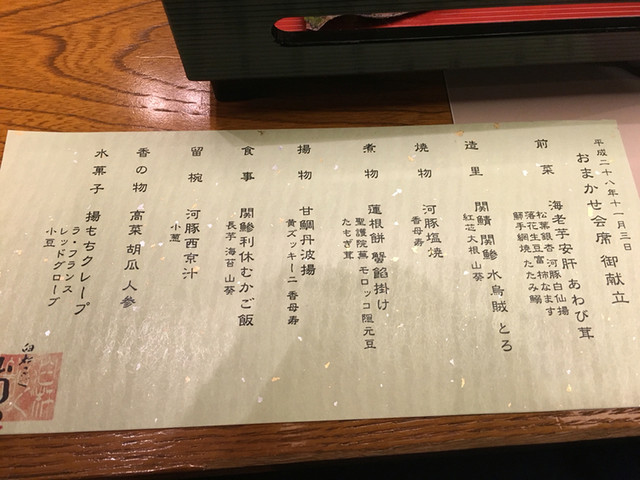 平成二十八年十一月三日
おまかせ会席 御献立
前菜
海老芋安肝 あわび茸
松葉銀杏 河豚白仙揚
落花生豆富 柿なます
鰤手綱焼 たたみ鰯
造里
関鯖 関鰺 水烏賊 とろ
紅芯大根 山葵
焼物
河豚塩焼
香母寿
煮物
蓮根餅 蟹餡掛け
聖護院蕪 モロッコ隠元豆
たもぎ茸
揚物
甘鯛丹波揚
黄ズッキーニ 香母寿
食事
関鰺利休むかご飯
長芋 海苔 山葵
留椀
河豚西京汁
小葱
香の物
高菜 胡瓜 人参
水菓子
揚もちクレープ
ラ・フランス
レッドグローブ
小豆